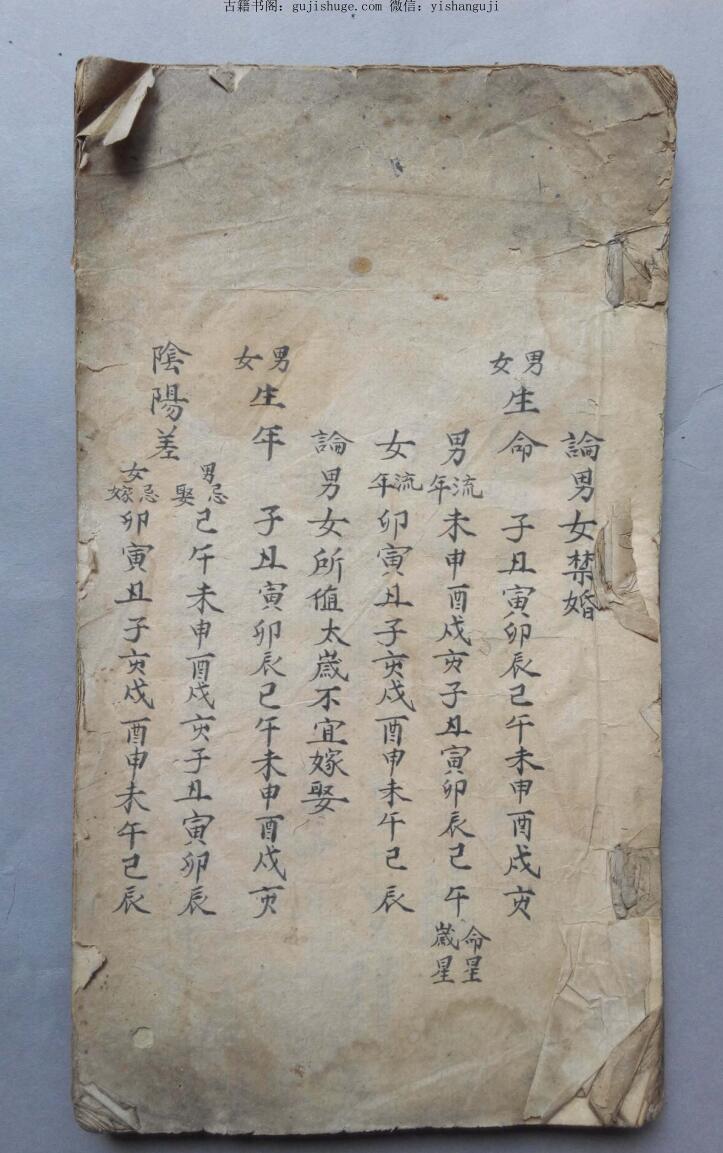 古籍书阁：gujishuge.com 微信：yishanguji
論男女禁婚
男女生命 子丑寅卯辰己午未申酉戌亥
男流年未申酉戌亥子丑寅卯辰己午命星歲星
女流年卯寅丑子亥戌酉申未午己辰
論男女所值太歲不宜嫁娶
男女生年 子丑寅卯辰己午未申酉戌亥
男忌娶己午未申酉戌亥子丑寅卯辰
陰陽差
女忌嫁卯寅丑子亥戌酉申未午己辰